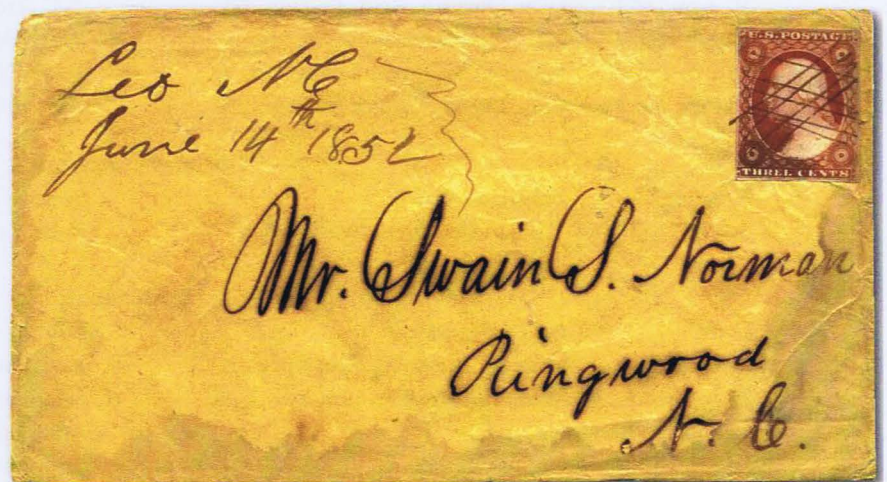 Leo NC
June 14th 1852
U.S. POSTAGE
THREE CENTS
Mr. Swain S. Norman
Ringwood
N. C.